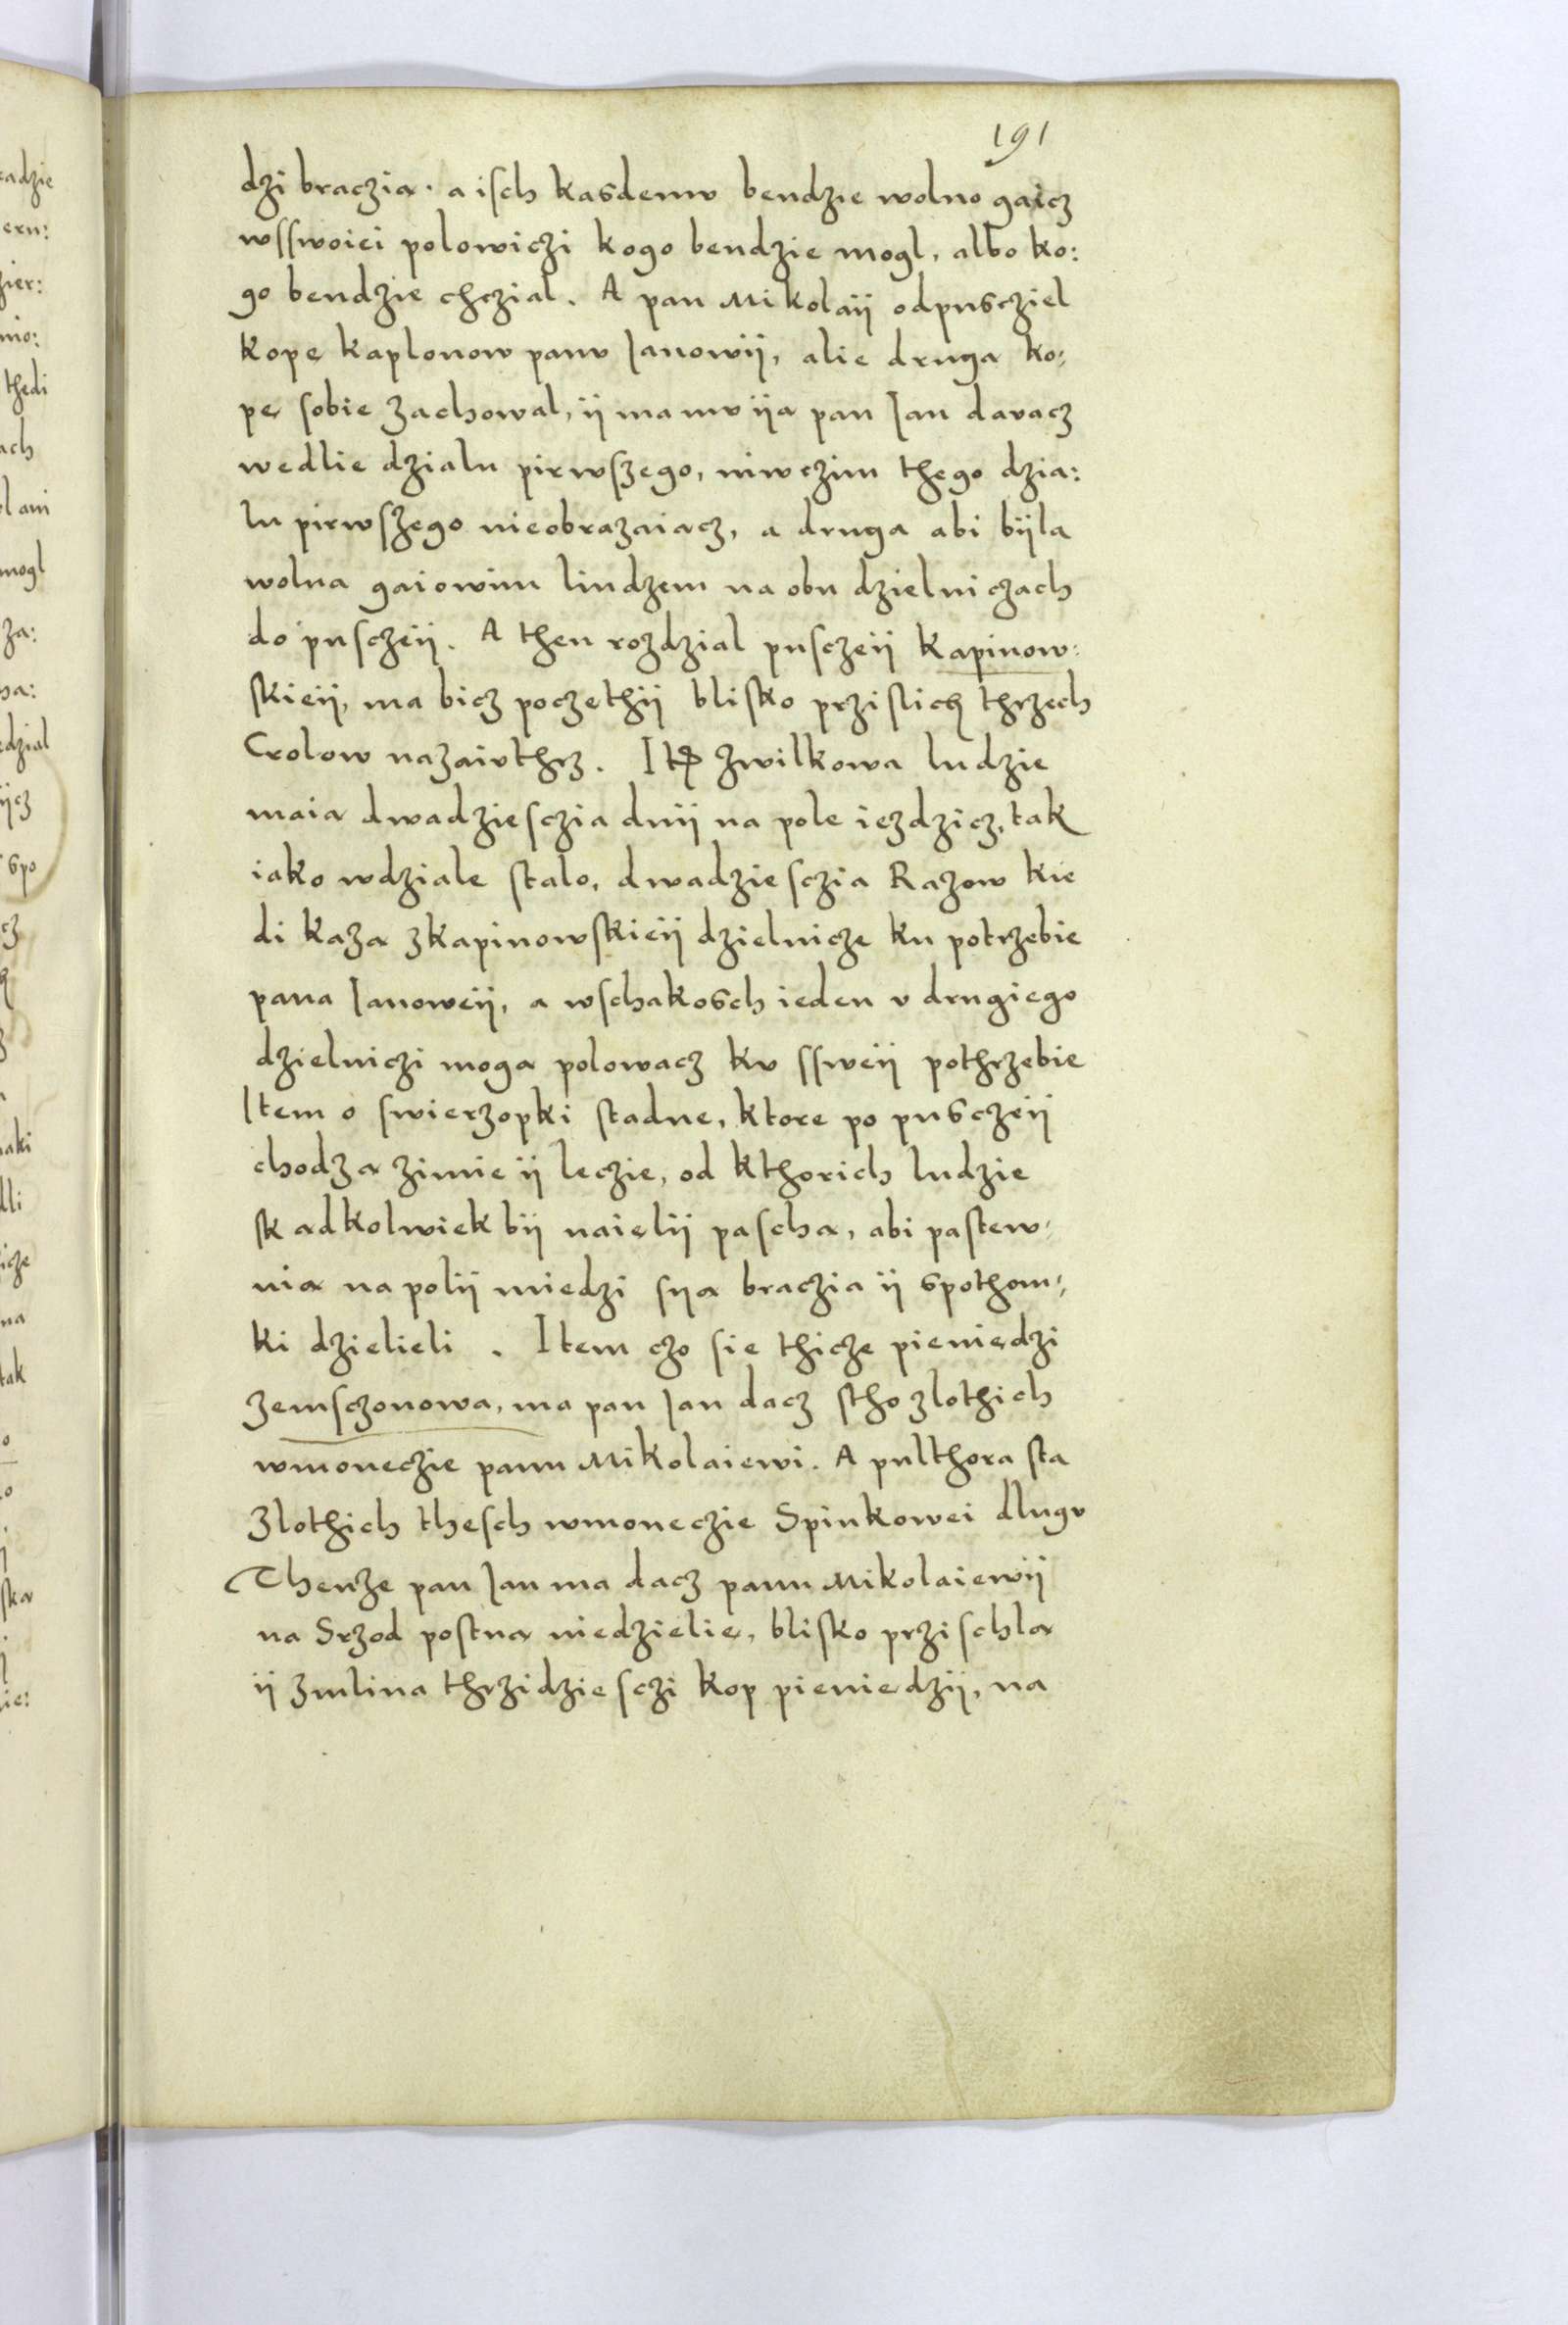 191
dzi braczia. a isch kasdemv bendzie wolno gaicz
wsswoiei polowiczi kogo bendzie mogl, albo ko:
go bendzie chczial. A pan Mikolaÿ odpusciel
kopę kaplonow panv Janowÿ, alie druga ko:
pę sobie zachowal, ÿ ma mv ÿa pan Jan davacz
wedlie dzialu pirwszego, niwczim thego dzia:
lu pirwszego nieobrazaiacz, a druga abi bÿla
wolna gaiowim liudzem na obu dzielniczach
do pusczeÿ. A then rozdzial pusczeÿ Kapinow:
skieÿ, ma bicz poczethÿ blisko przislich thrzech
Crolow nazaivthrz. Itꝫ zwilkowa ludzie
maia dwadziesczia dnÿ na pole iezdzicz, tak
iako wdziale stalo, dwadziesczia Razow kie
di kaza zkapinowskieÿ dzielnicze ku potrzebie
pana Janoweÿ, a wschakosch ieden v drugiego
dzielniczi moga polowacz kv ssweÿ pothrzebie
Item o swierzopki stadne, ktore po pusczeÿ
chodza zimie ÿ leczie, od kthorich ludzie
skadkolwiek bÿ naielÿ pascha, abi pastew:
nia na polÿ miedzi sya braczia ÿ spothom:
ki dzielieli. Item czo sie thicze pieniędzi
zemsczonowa, ma pan Jan dacz stho zlothich
wmoneczie panu Mikolaiewi. A pulthora sta
zlothich thesch wmoneczie Spinkowei dlugv
Thenze pan Jan ma dacz panu Mikolaiewÿ
na Srzod postna niedzielię, blisko przischla
ÿ zmlina thrzidziesczi kop pieniedzÿ, na